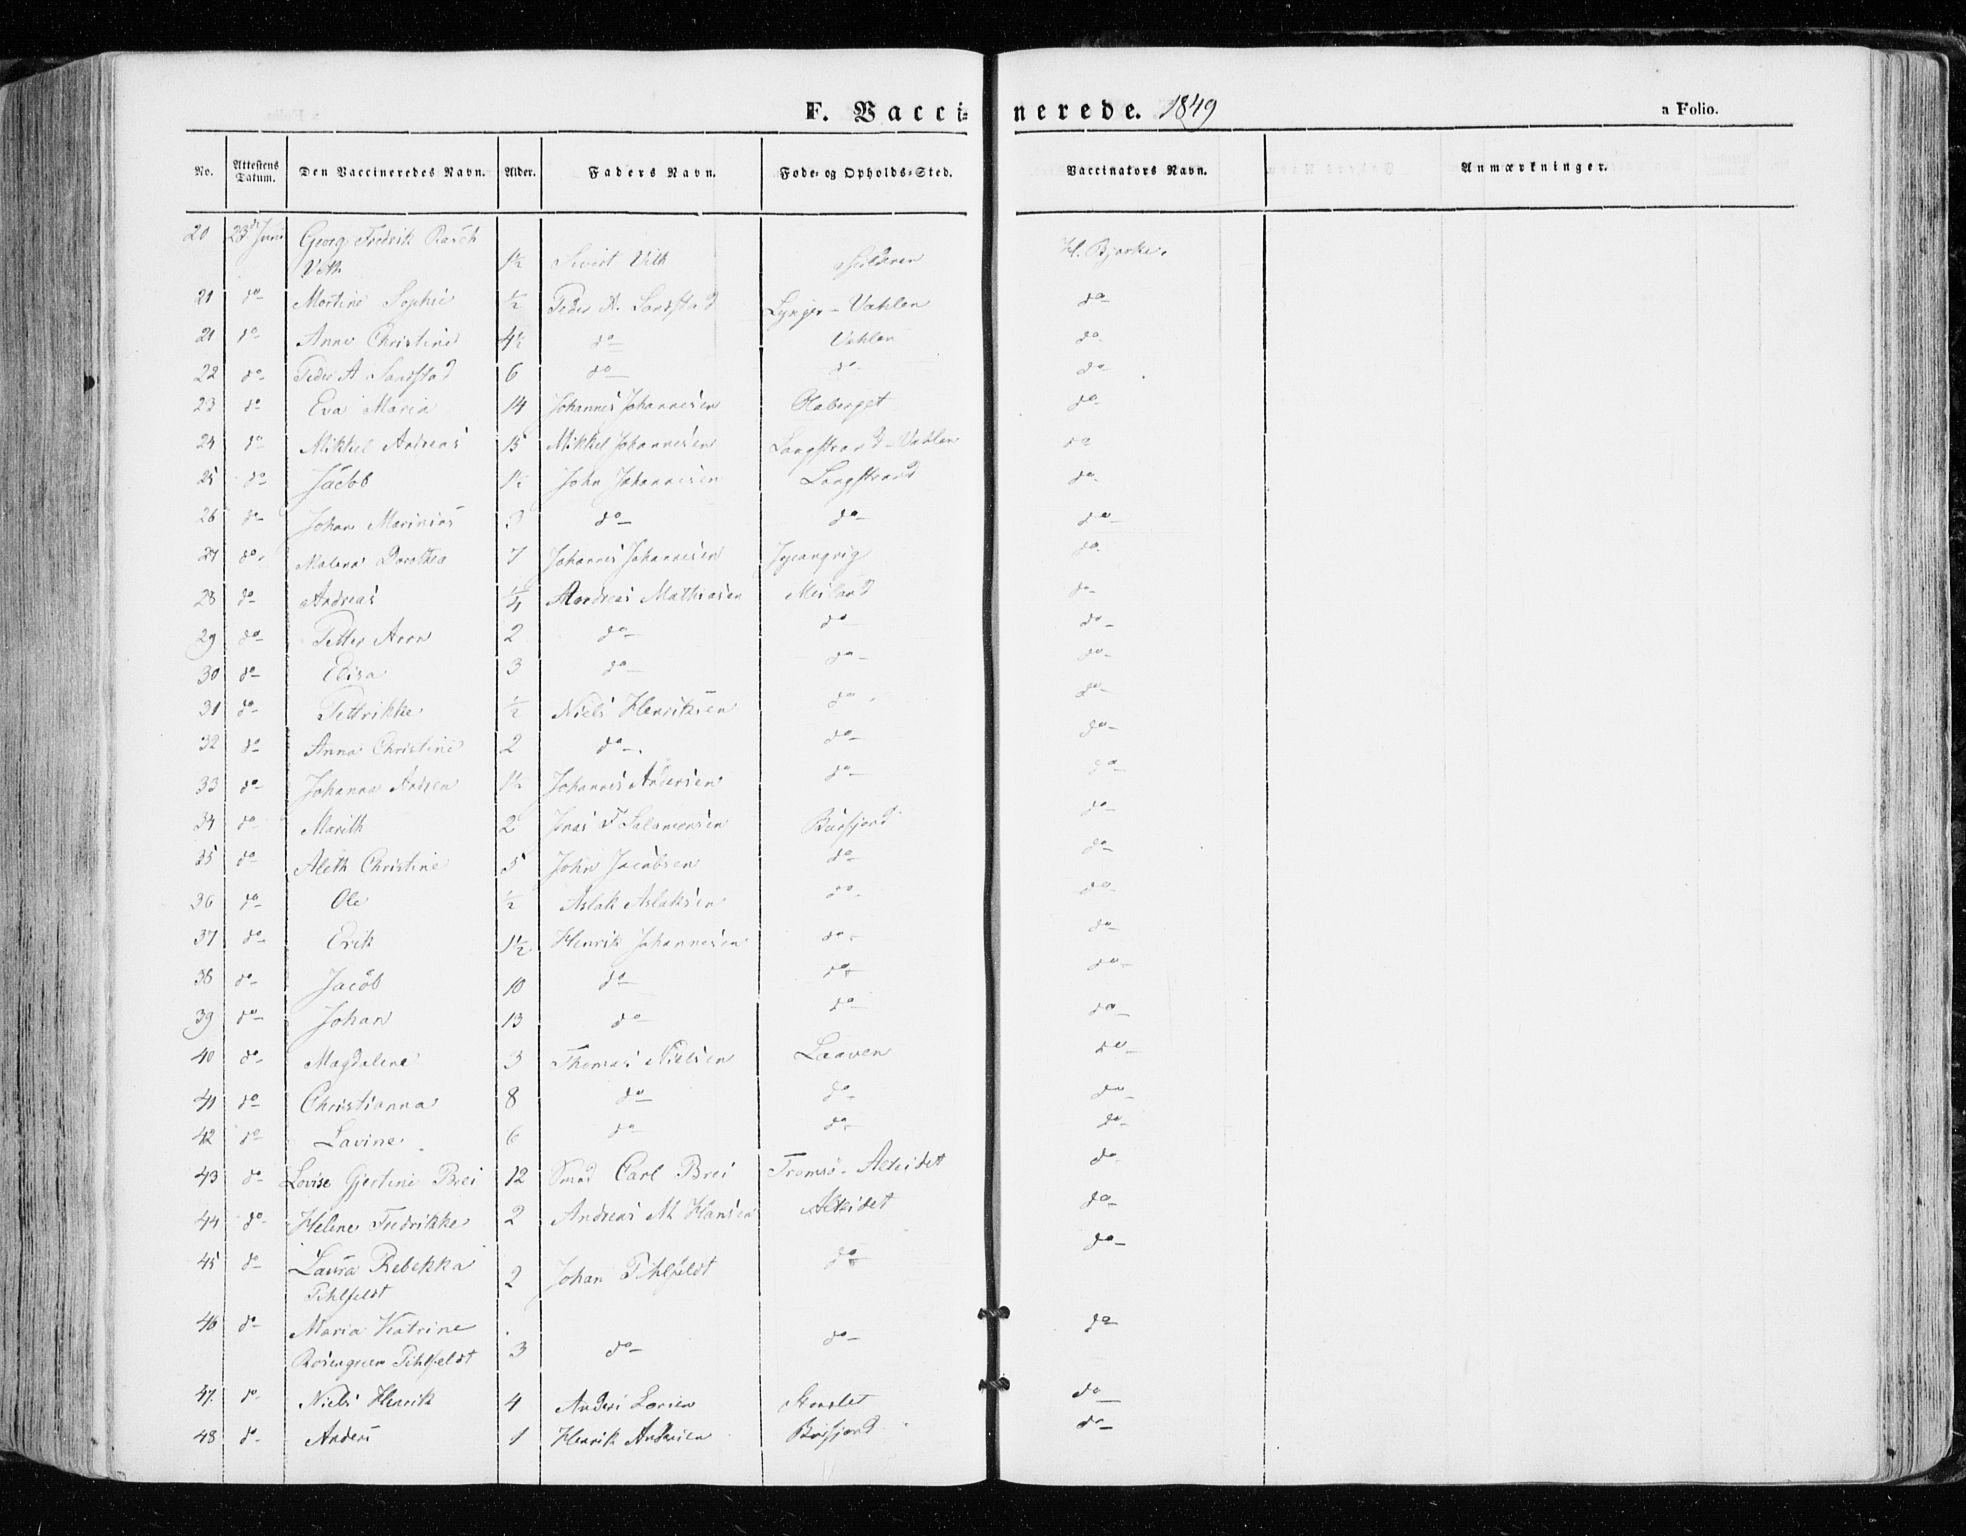 F. Vaccinerede. 1849
a Folio.
No. Attestens Datum. Den Vaccineredes Navn. Alder. Faders Navn. Føde- og Opholds-Sted. Vaccinators Navn. Anmærkninger.
20 23de Juni Georg Fredrik Rasch
Veth 1½ Sivert Veth H. Bjerke.
21 do Martine Sophie ½ Peder A. Sandstad Lynger - Vahlen do
21 do Anne Christine 4½ do Vahlen do
22 do Peder A Sandstad 6 do do do
23 do Eva Maria 14 Johannes Johannesen do
24 do Mikkel Andreas 15 Mikkel Johannesen Langstrand - Vahlen do
25 do Jacob 1½ John Johannesen Langstrand do
26 do Johan Marinius 3 do do do
27 do Malena Dorothea 7 Johannes Johannesen do
28 do Andreas ¼ Andreas Mathiasen Meiland do
29 do Petter Aron 2 do do do
30 do Elisa 3 do do do
31 do Pettrikke ½ Niels Henriksen do do
32 do Anna Christine 2 do do do
33 do Johanna Andrea 1½ Johannes Andersen do do
34 do Marith 2 Jonas F Salamonsen Burfjord do
35 do Aleth Christine 5 John Jacobsen do do
36 do Ole ½ Aslak Aslaksen do do
37 do Erik 1½ Henrik Johannesen do do
38 do Jacob 10 do do do
39 do Johan 13 do do do
40 do Magdalene 3 Thomas Nielsen Laaven do
41 do Christianna 8 do do do
42 do Lavine 6 do do do
43 do Lovise Gjertine Brei 12 Smed Carl Brei Tromsø - Alteidet do
44 do Helene Fredrikke 2 Andreas M Hansen Alteidet do
45 do Laura Rebekka
Pihlfeldt 2 Johan Pihlfeldt do do
46 do Maria Katrine
Rosengreen Pihlfeldt 3 do do do
47. do Niels Henrik 4 Anders Larsen Storslet do
48 do Anders 1 Henrik Andersen Burfjord do